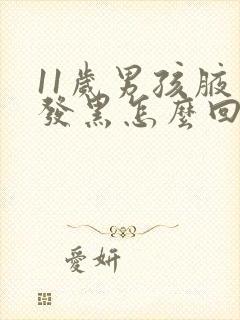 11歲男孩腋
發黑怎麼回
愛妍